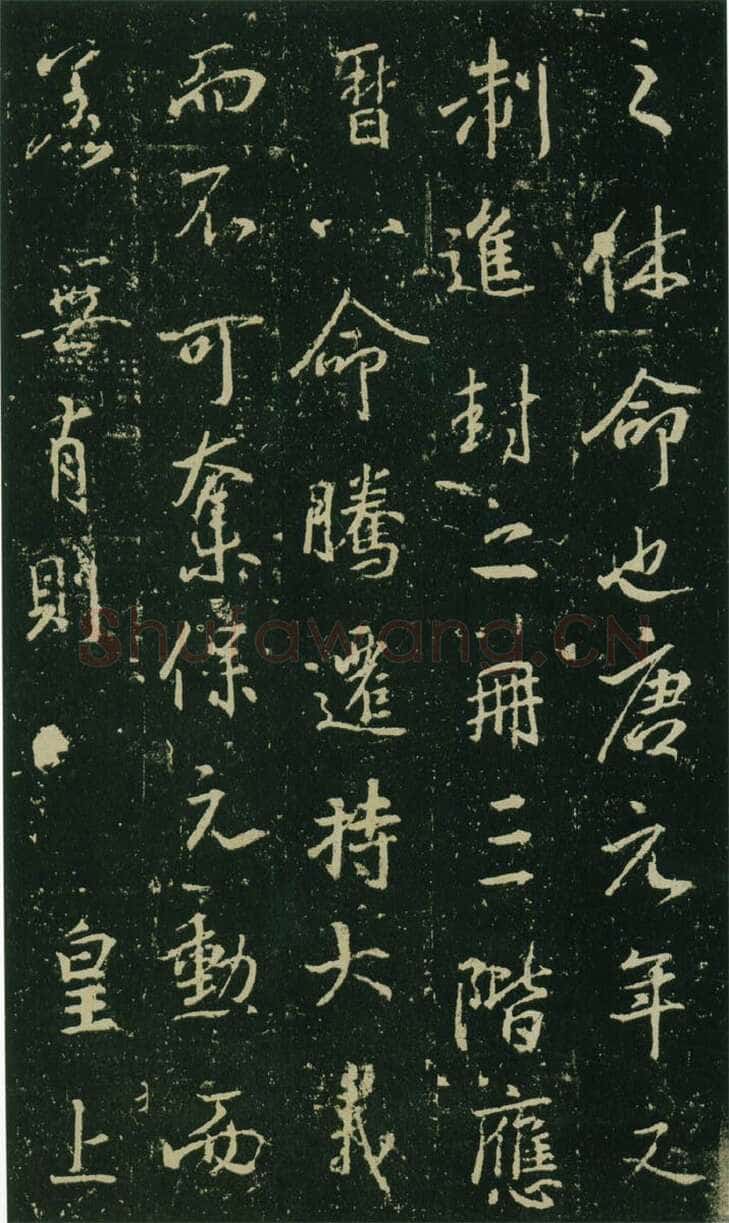 之休命也唐元年又
制進封二冊三階應
曆八命騰遷持大義
而不可奪保元勳而
善無有則皇上
ShufaWang.CN